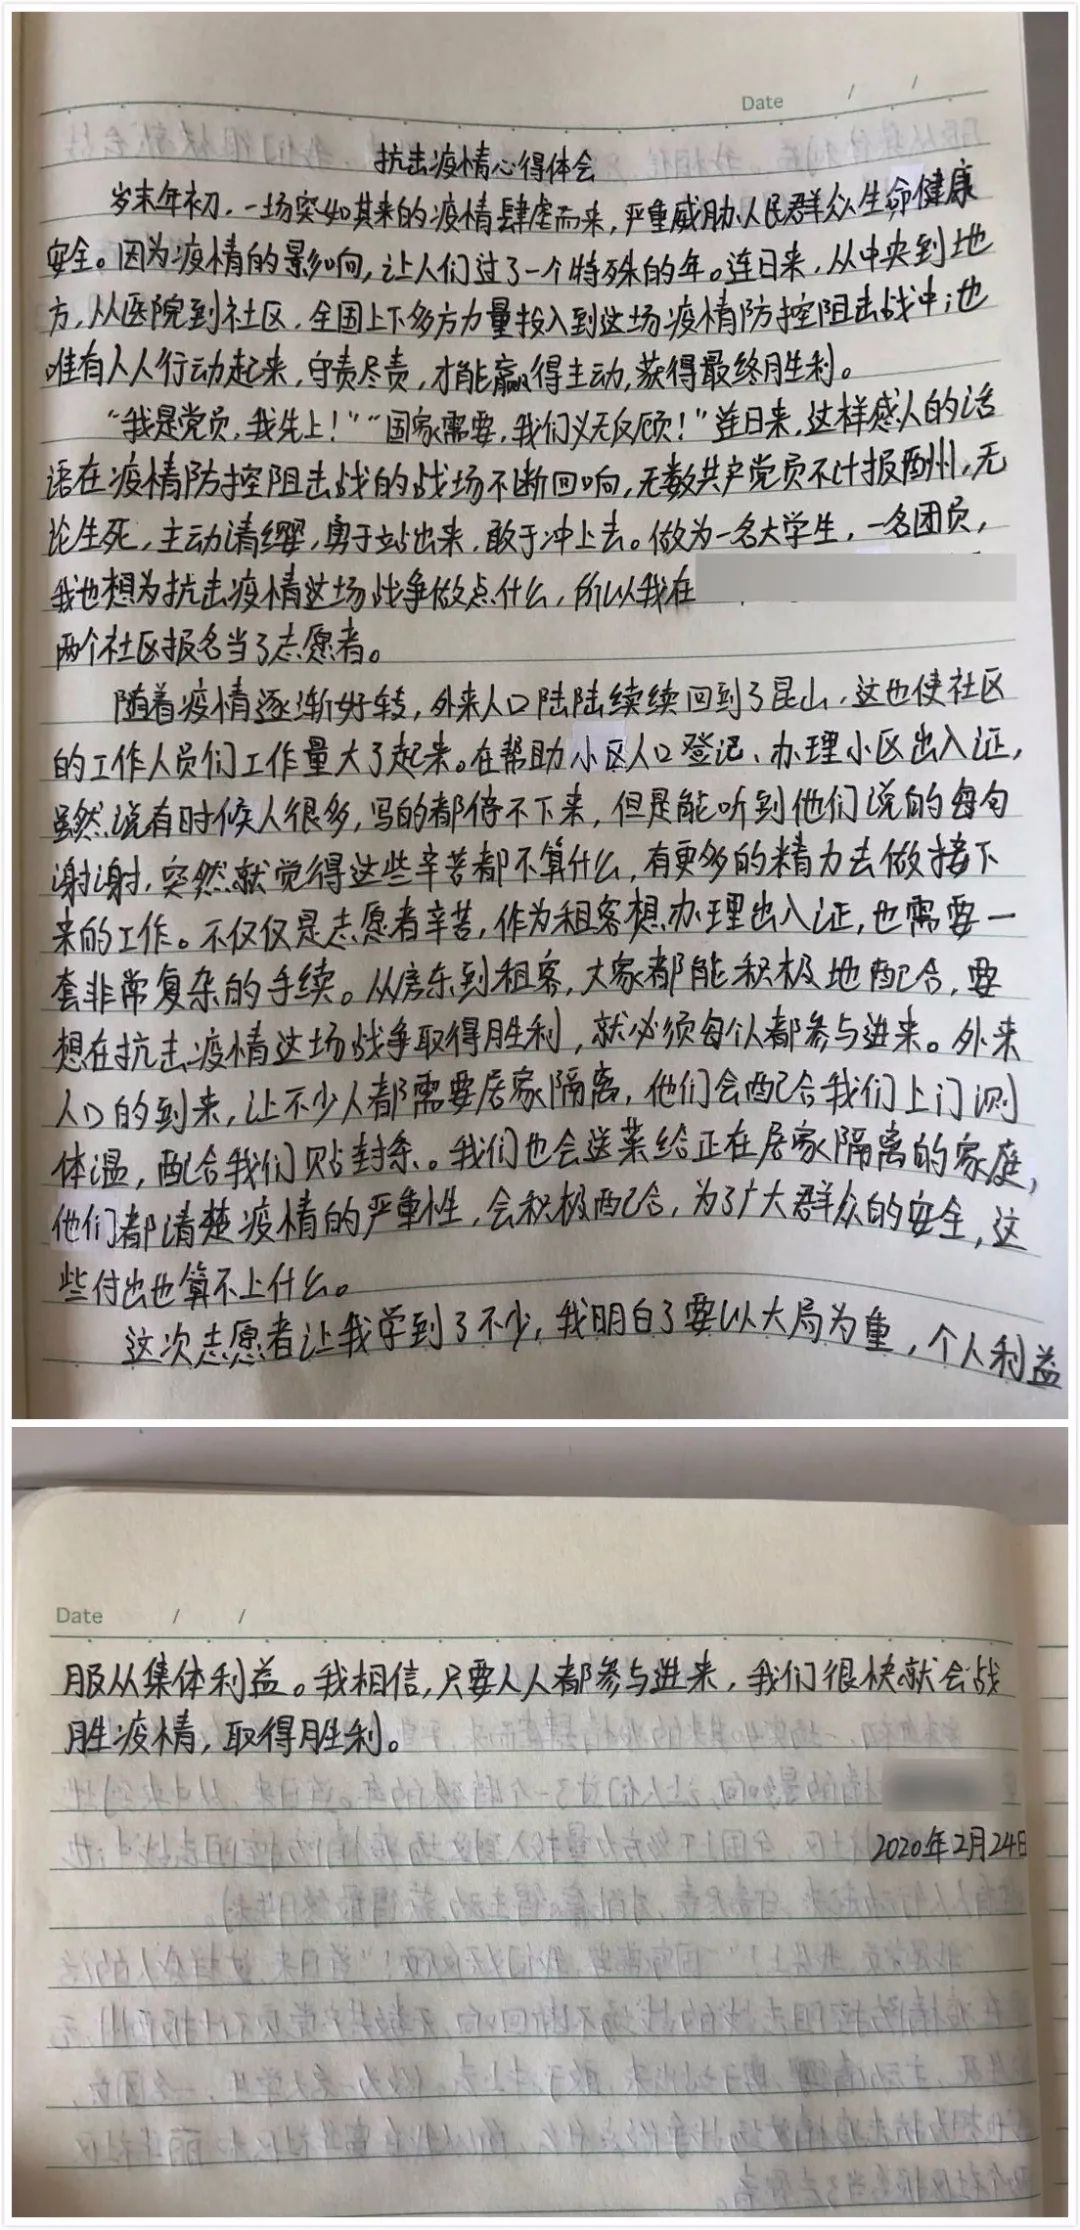 Date / /
抗击疫情心得体会
岁末年初，一场突如其来的疫情肆虐而来，严重威胁人民群众生命健康
安全。因为疫情的影响，让人们过了一个特殊的年。连日来，从中央到地
方，从医院到社区，全国上下多方力量投入到这场疫情防控阻击战中；也
唯有人人行动起来，守责尽责，才能赢得主动，获得最终胜利。
“我是党员，我先上！”“国家需要，我们义无反顾！”连日来，这样感人的话
语在疫情防控阻击战的战场不断回响，无数共产党员不计报酬，无
论生死，主动请缨，勇于站出来，敢于冲上去。做为一名大学生，一名团员，
我也想为抗击疫情这场战争做点什么，所以我在
两个社区报名当了志愿者。
随着疫情逐渐好转，外来人口陆陆续续回到了昆山，这也使社区
的工作人员们工作量大了起来。在帮助小区人口登记、办理小区出入证，
虽然说有时候人很多，写的都停不下来，但是能听到他们说的每句
谢谢，突然就觉得这些辛苦都不算什么，有更多的精力去做接下
来的工作。不仅仅是志愿者辛苦，作为租客想办理出入证，也需要一
套非常复杂的手续。从房东到租客，大家都能积极地配合，要
想在抗击疫情这场战争取得胜利，就必须每个人都参与进来。外来
人口的到来，让不少人都需要居家隔离，他们会配合我们上门测
体温，配合我们贴封条。我们也会送菜给正在居家隔离的家庭，
他们都清楚疫情的严重性，会积极配合，为了广大群众的安全，这
些付出也算不上什么。
这次志愿者让我学到了不少，我明白了要以大局为重，个人利益
Date / /
服从集体利益。我相信，只要人人都参与进来，我们很快就会战
胜疫情，取得胜利。
2020年2月24日